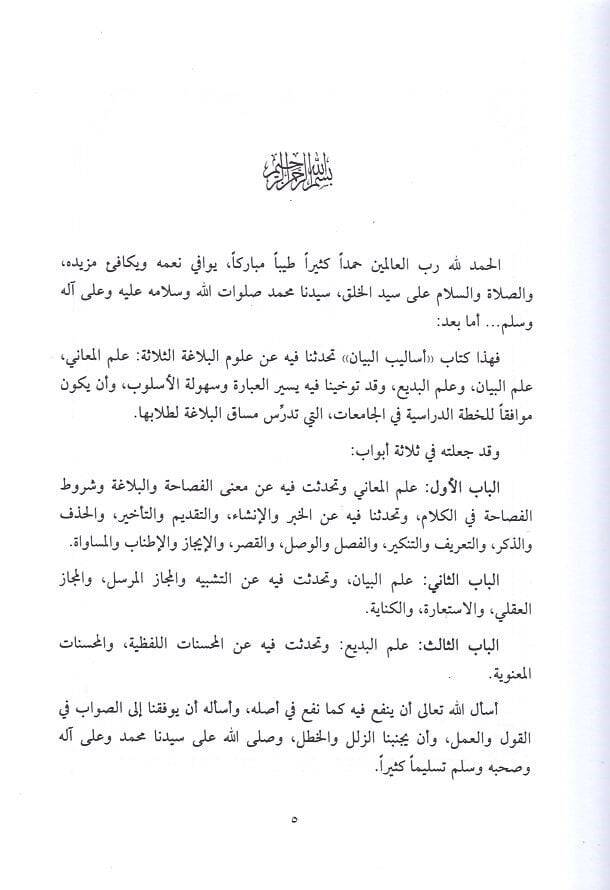 بسم الله الرحمن الرحيم
الحمد لله رب العالمين حمداً كثيراً طيباً مباركاً، يوافي نعمه ويكافئ مزيده،
والصلاة والسلام على سيد الخلق، سيدنا محمد صلوات الله وسلامه عليه وعلى آله
وسلم... أما بعد:
فهذا كتاب «أساليب البيان» تحدثنا فيه عن علوم البلاغة الثلاثة: علم المعاني،
علم البيان، وعلم البديع، وقد توخينا فيه يسير العبارة وسهولة الأسلوب، وأن يكون
موافقاً للخطة الدراسية في الجامعات، التي تدرِّس مساق البلاغة لطلابها.
وقد جعلته في ثلاثة أبواب:
الباب الأول: علم المعاني وتحدثت فيه عن معنى الفصاحة والبلاغة وشروط
الفصاحة في الكلام، وتحدثنا فيه عن الخبر والإنشاء، والتقديم والتأخير، والحذف
والذكر، والتعريف والتنكير، والفصل والوصل، والقصر، والإيجاز والإطناب والمساواة.
الباب الثاني: علم البيان، وتحدثت فيه عن التشبيه والمجاز المرسل، والمجاز
العقلي، والاستعارة، والكناية.
الباب الثالث: علم البديع: وتحدثت فيه عن المحسنات اللفظية، والمحسنات
المعنوية.
أسأل الله تعالى أن ينفع فيه كما نفع في أصله، وأسأله أن يوفقنا إلى الصواب في
القول والعمل، وأن يجنبنا الزلل والخطل، وصلى الله على سيدنا محمد وعلى آله
وصحبه وسلم تسليماً كثيراً.
٥